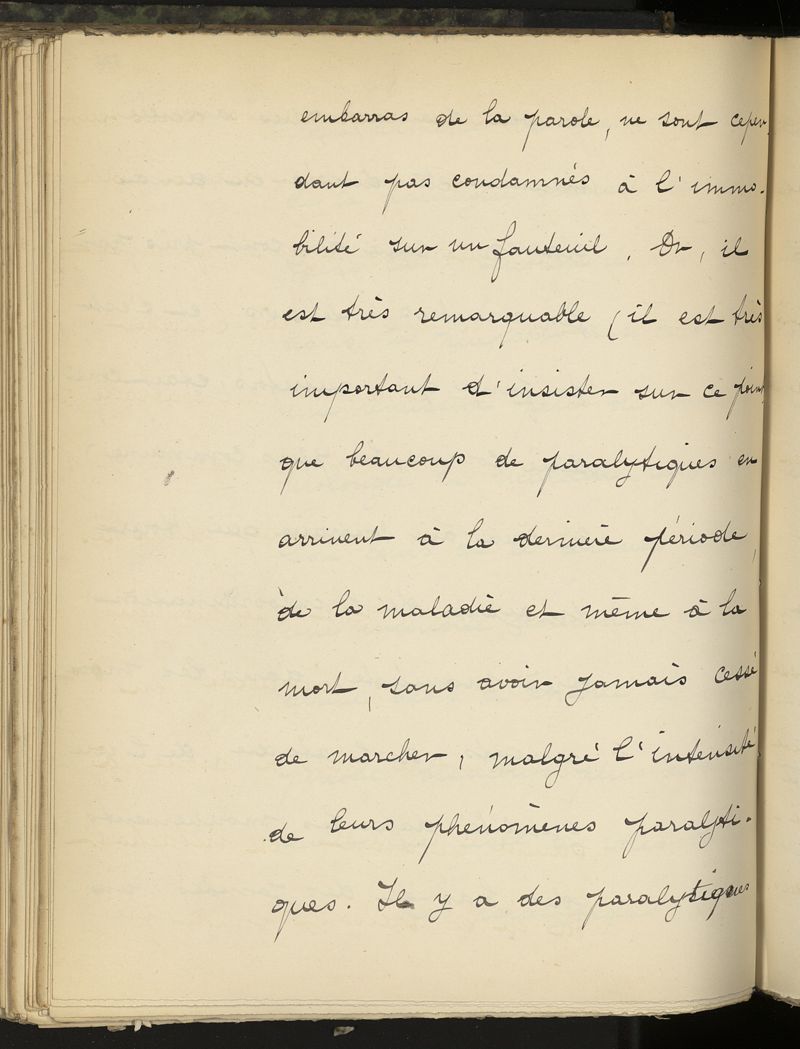 embarras de la parole, ne sont cepen-
dant pas condamnés à l'immo-
bilité sur un fauteuil. Or, il
est très remarquable (il est très
important d'insister sur ce point
que beaucoup de paralytiques en
arrivent à la dernière période,
de la maladie et même à la
mort, sans avoir jamais cessé
de marcher, malgré l'intensité,
de leurs phénomènes paralyti-
ques. Il y a des paralytiques